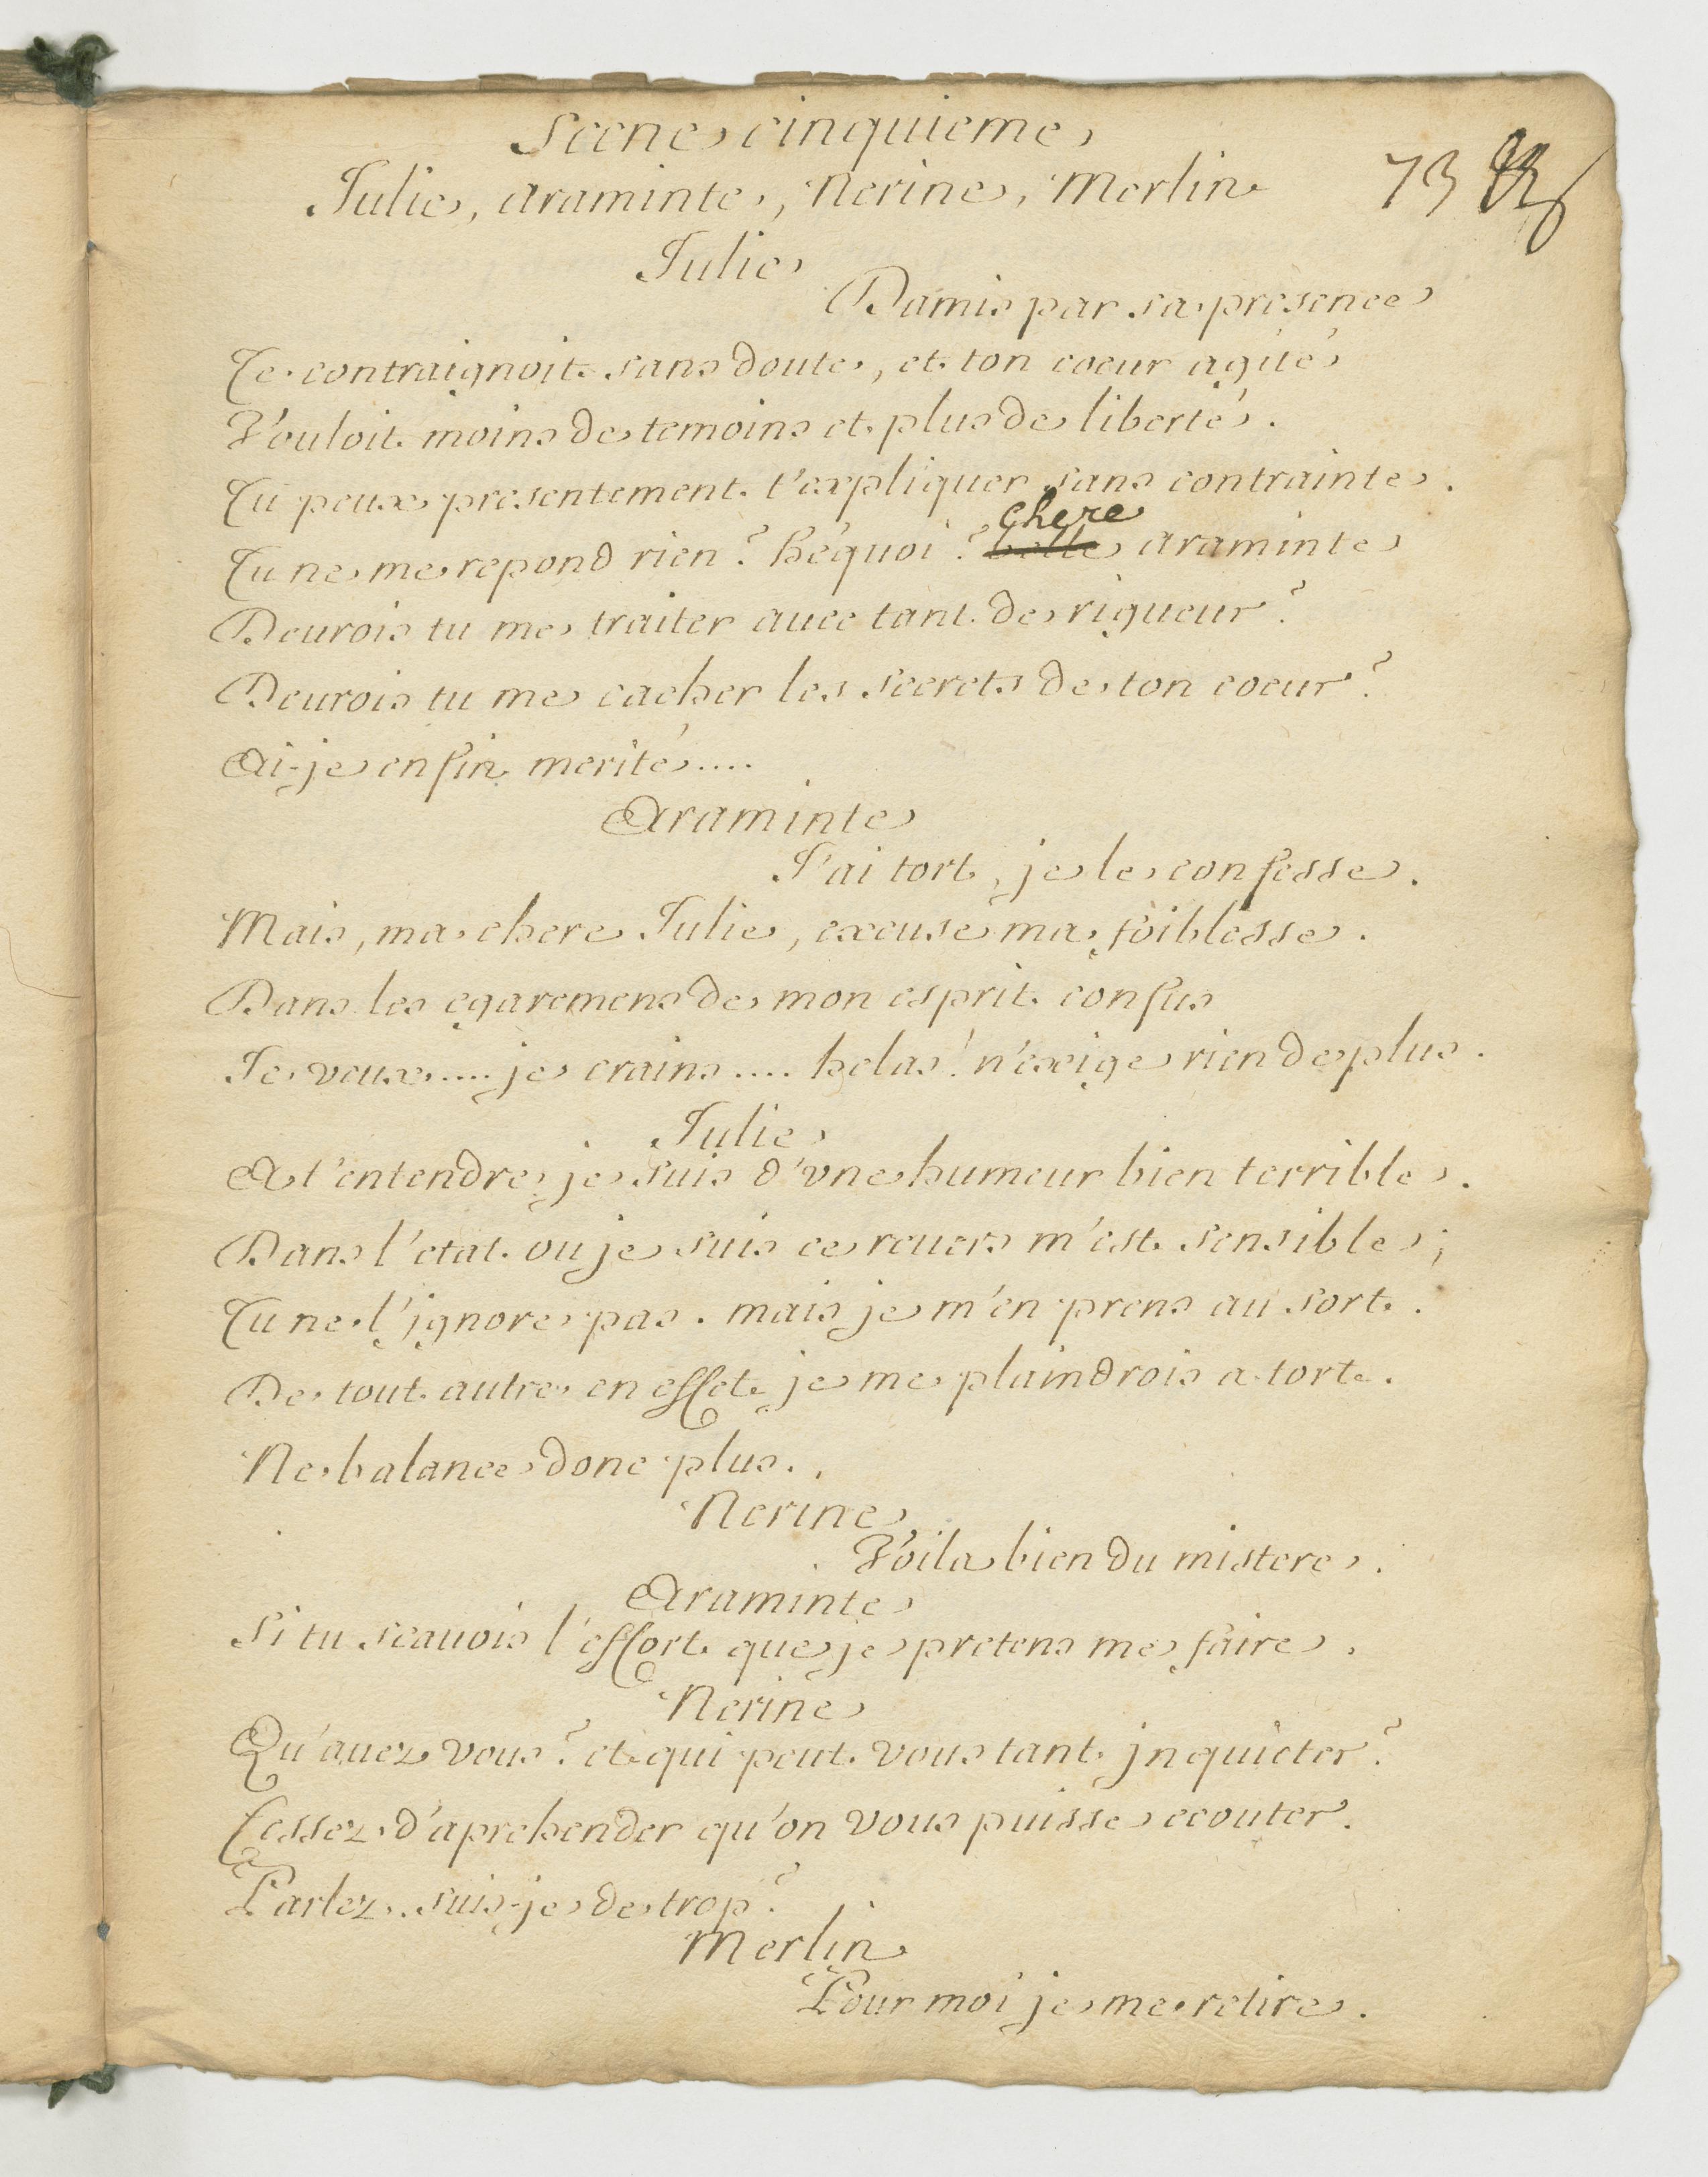 Scene cinquieme
Julie, araminte, Nerine, Merlin
73
Julie
Damis par sa presence
Te contraignoit sans doute, et ton coeur agité
Vouloit moins de temoins et plus de liberté.
Tu peux presentement t'expliquer sans contrainte.
chere
Tu ne me repond rien? hé quoi? belle araminte
Deurois tu me traiter auec tant de rigueur?
Deurois tu me cacher les secrets de ton coeur?
Ai-je enfin merité....
Araminte
J'ai tort, je le confesse.
Mais, ma chere Julie, excuse ma foiblesse.
Dans les egaremens de mon esprit confus
Je veux.... je crains.... helas! n'exige rien de plus.
Julie
A t'entendre je suis d'vne humeur bien terrible.
Dans l'etat ou je suis ce reuers m'est sensible;
Tu ne l'jgnore pas. mais je m'en prens au sort.
De tout autre en effet je me plaindrois a tort.
Ne balance donc plus.
Nerine
Voila bien du mistere.
Araminte
Si tu scauois l'effort que je pretens me faire.
Nerine
Qu'auez vous? et qui peut vous tant jnquieter?
Cessez d'aprehender qu'on vous puisse ecouter.
Parlez. suis-je de trop?
Merlin
Pour moi je me retire.